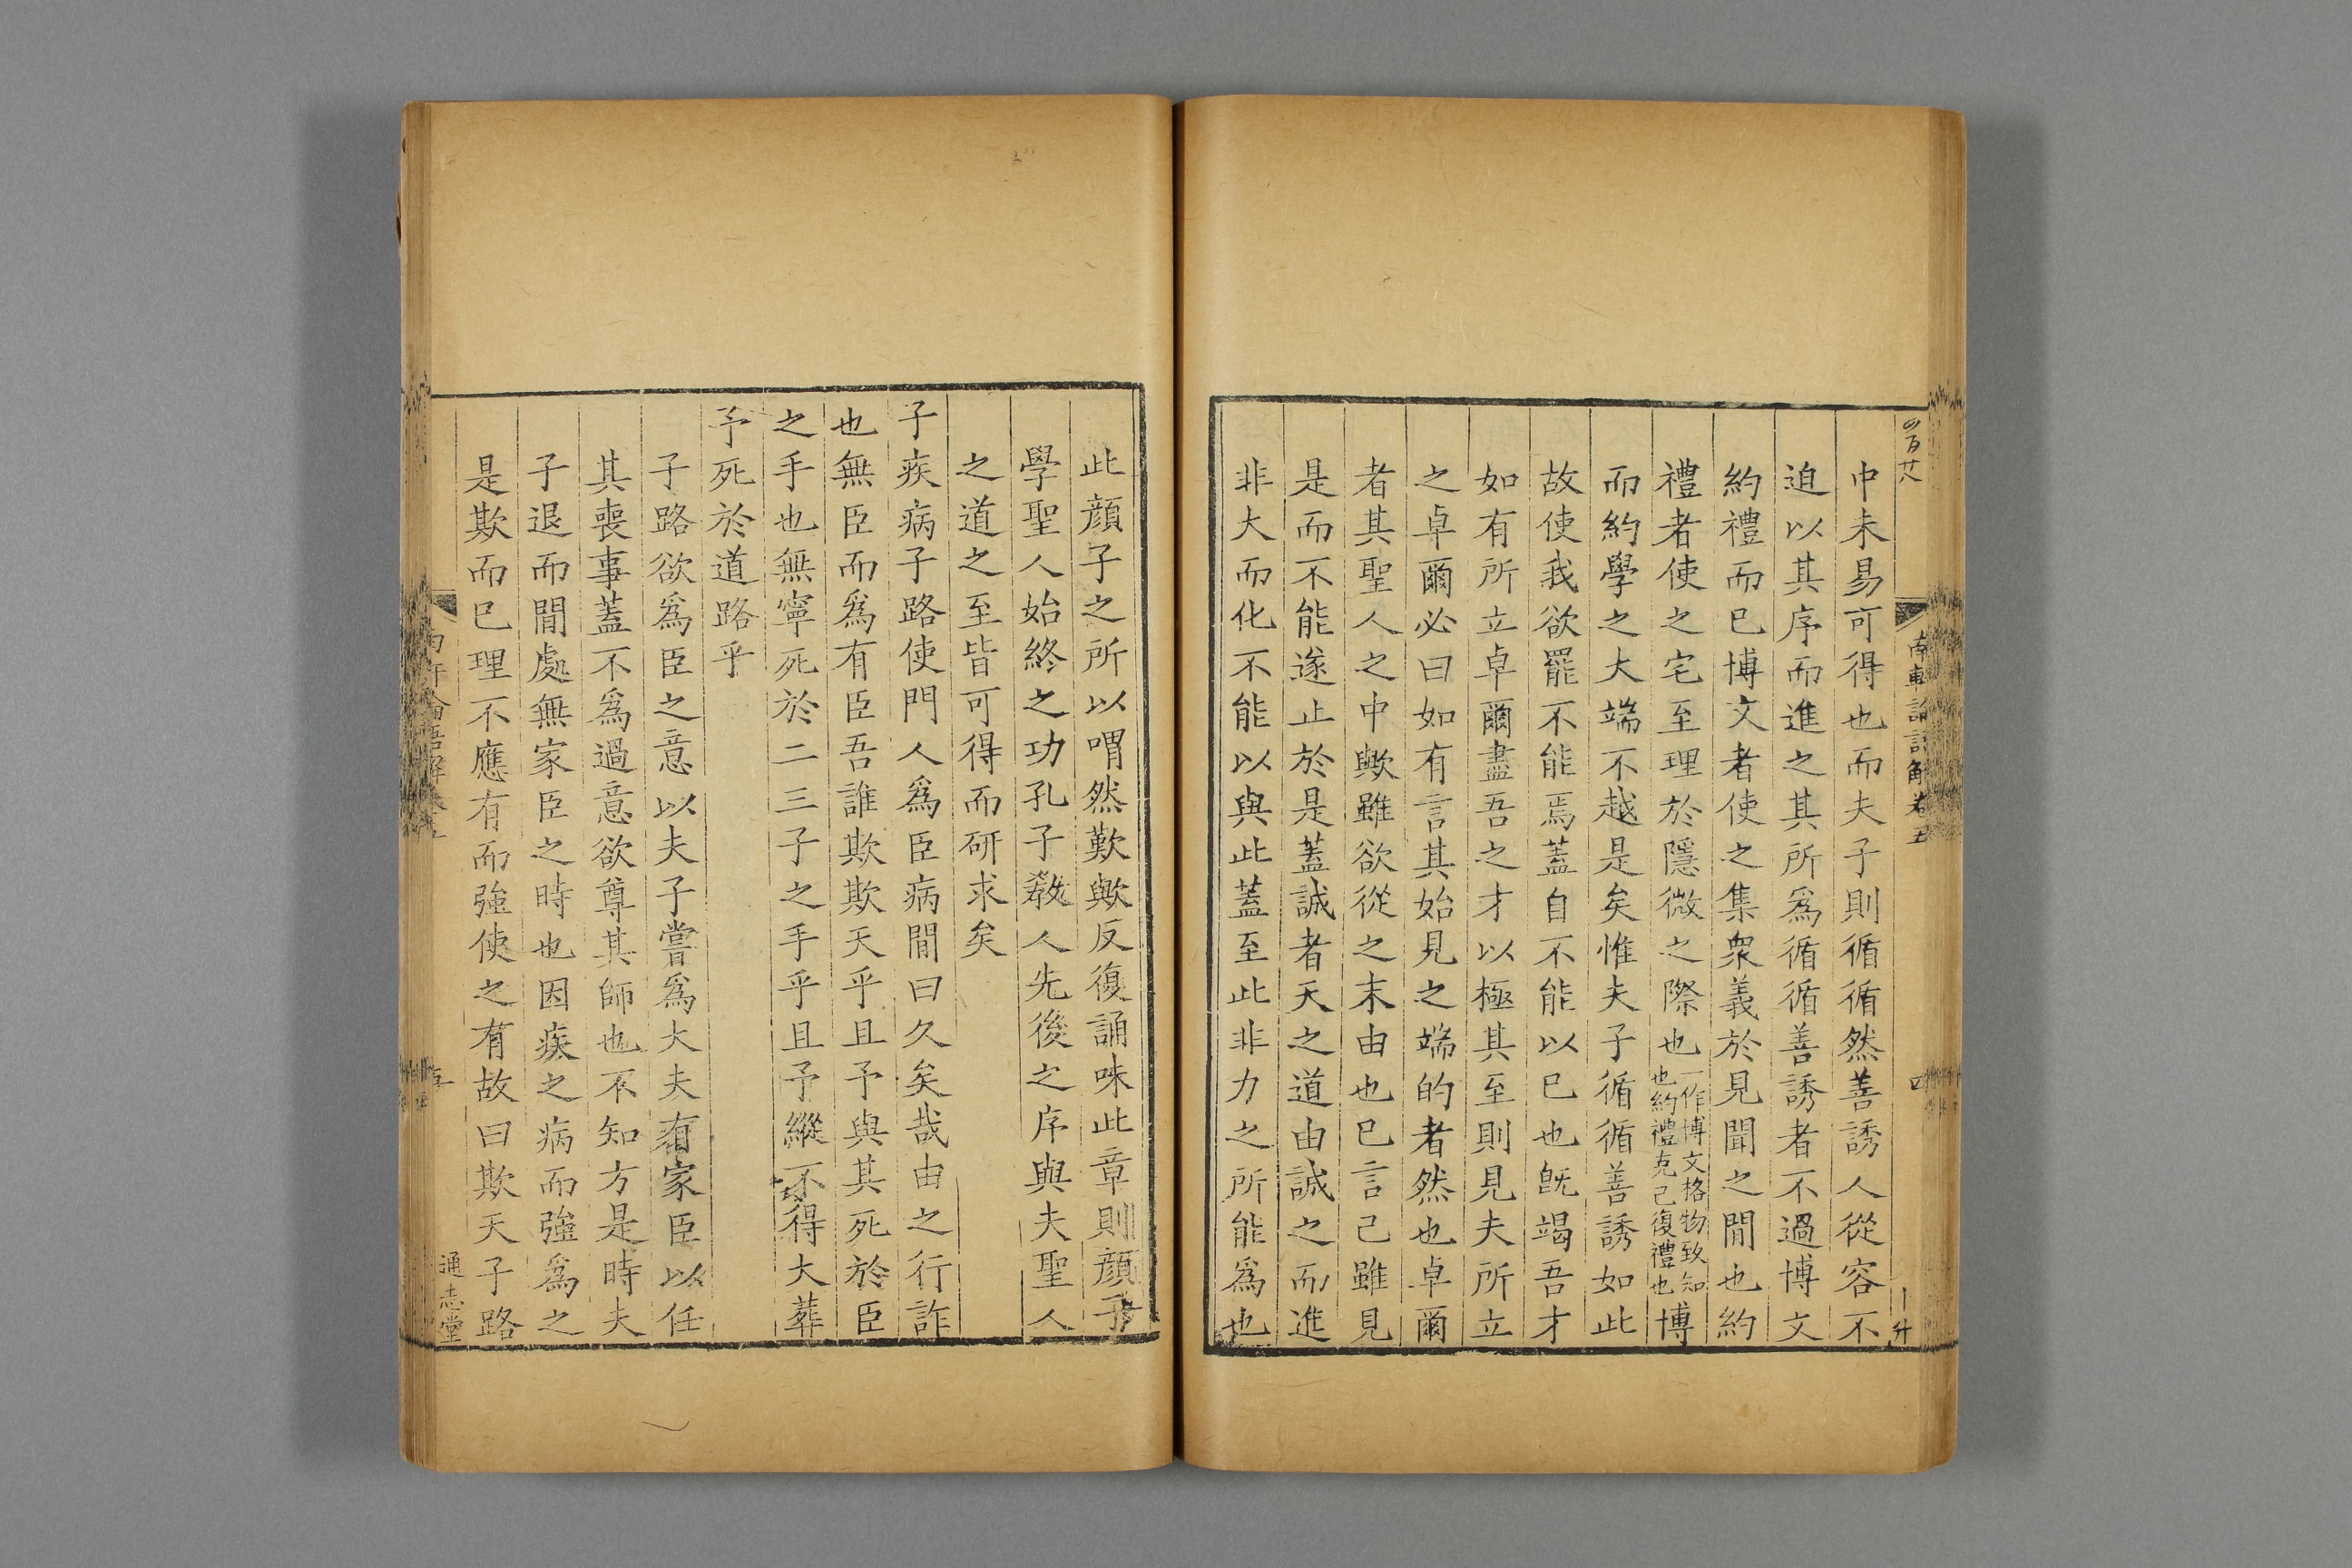 南軒論語解卷五
四
中未易可得也而夫子則循循然善誘人從容不
迫以其序而進之其所爲循循善誘者不過博文
約禮而已博文者使之集衆義於見聞之閒也約
禮者使之宅至理於隱微之際也一作博文格物致知也約禮克己復禮也博
而約學之大端不越是矣惟夫子循循善誘如此
故使我欲罷不能焉蓋自不能以已也旣竭吾才
如有所立卓爾盡吾之才以極其至則見夫所立
之卓爾必曰如有言其始見之端的者然也卓爾
者其聖人之中歟雖欲從之末由也已言己雖見
是而不能遂止於是蓋誠者天之道由誠之而進
非大而化不能以與此蓋至此非力之所能爲也
此顏子之所以喟然歎歟反復誦味此章則顏子
學聖人始終之功孔子教人先後之序與夫聖人
之道之至皆可得而研求矣
子疾病子路使門人爲臣病閒曰久矣哉由之行詐
也無臣而爲有臣吾誰欺欺天乎且予與其死於臣
之手也無寧死於二三子之手乎且予縱不得大葬
予死於道路乎
子路欲爲臣之意以夫子嘗爲大夫有家臣以任
其喪事蓋不爲過意欲尊其師也不知方是時夫
子退而閒處無家臣之時也因疾之病而強爲之
是欺而已理不應有而強使之有故曰欺天子路
通志堂